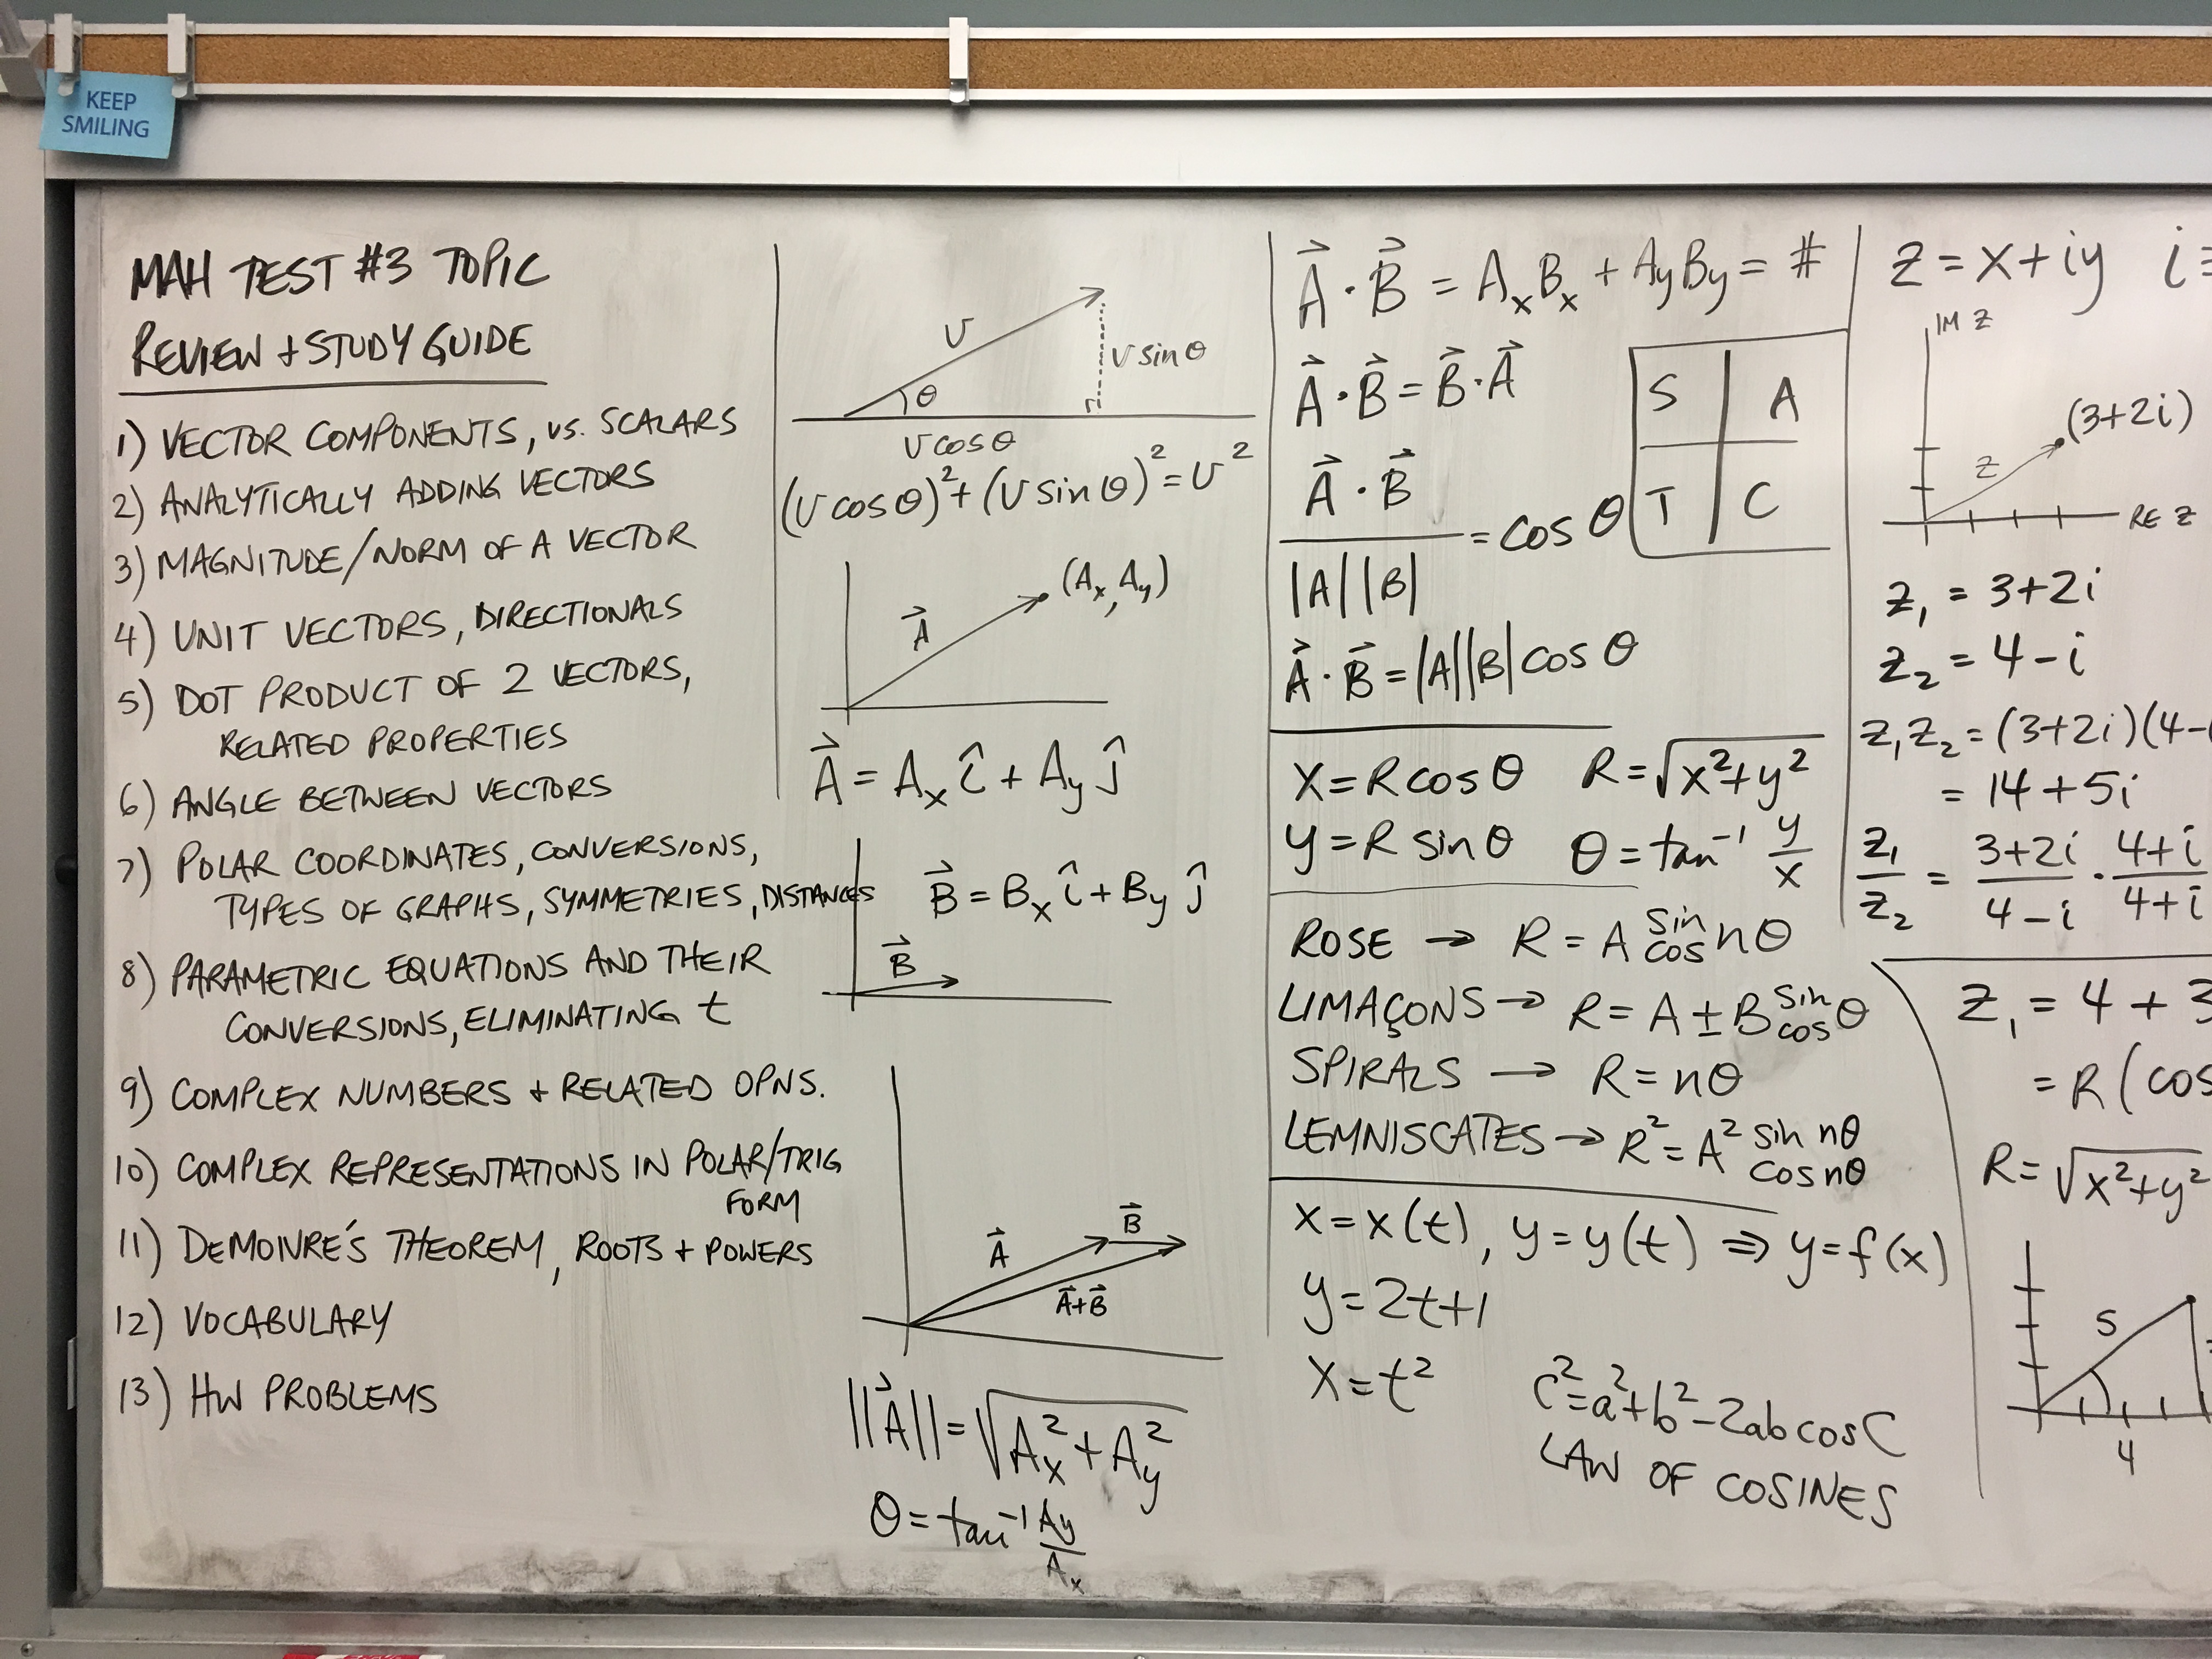 KEEP
SMILING
MAH TEST #3 TOPIC
REVIEW + STUDY GUIDE
1) VECTOR COMPONENTS, vs. SCALARS
2) ANALYTICALLY ADDING VECTORS
3) MAGNITUDE/NORM OF A VECTOR
4) UNIT VECTORS, DIRECTIONALS
5) DOT PRODUCT OF 2 VECTORS,
RELATED PROPERTIES
6) ANGLE BETWEEN VECTORS
7) POLAR COORDINATES, CONVERSIONS,
TYPES OF GRAPHS, SYMMETRIES, DISTANCES
8) PARAMETRIC EQUATIONS AND THEIR
CONVERSIONS, ELIMINATING t
9) COMPLEX NUMBERS + RELATED OPNS.
10) COMPLEX REPRESENTATIONS IN POLAR/TRIG
FORM
11) DEMOIVRE'S THEOREM, ROOTS + POWERS
12) VOCABULARY
13) HW PROBLEMS
v
θ
v sin θ
v cos θ
(v cos θ)² + (v sin θ)² = v²
(Aₓ, Aᵧ)
A⃗
A⃗ = Aₓ î + Aᵧ ĵ
B⃗ = Bₓ î + Bᵧ ĵ
B⃗
A⃗
B⃗
A⃗+B⃗
||A⃗|| = √(Aₓ² + Aᵧ²)
θ = tan⁻¹ Aᵧ/Aₓ
A⃗ · B⃗ = AₓBₓ + AᵧBᵧ = #
A⃗ · B⃗ = B⃗ · A⃗
A⃗ · B⃗ / |A||B| = cos θ
S A
T C
A⃗ · B⃗ = |A||B| cos θ
x = R cos θ R = √(x² + y²)
y = R sin θ θ = tan⁻¹ y/x
ROSE → R = A sin cos nθ
LIMAÇONS → R = A ± B sin cos θ
SPIRALS → R = nθ
LEMNISCATES → R² = A² sin nθ
cos nθ
x = x(t), y = y(t) ⇒ y = f(x)
y = 2t+1
x = t²
c² = a² + b² - 2ab cos C
LAW OF COSINES
z = x + iy i =
IM Z
(3+2i)
z
RE Z
z₁ = 3+2i
z₂ = 4-i
z₁z₂ = (3+2i)(4-
= 14 + 5i
z₁/z₂ = 3+2i/4-i · 4+i/4+i
z₁ = 4 + 3
= R(cos
R = √(x² + y²
5
4